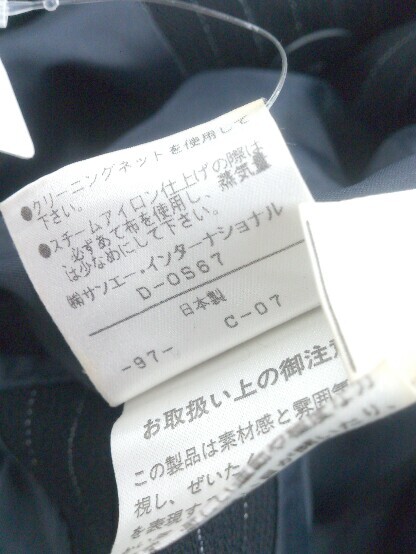 ●クリーニングネットを使用して
下さい。
●スチームアイロン仕上げの際は
必ずあて布を使用し、蒸気量
は少なめにして下さい。
㈱サンエー・インターナショナル
D-0S67
日本製
-97- C-07
お取扱い上の御注意
この製品は素材感と雰囲気
視し、ぜいた
を表現す